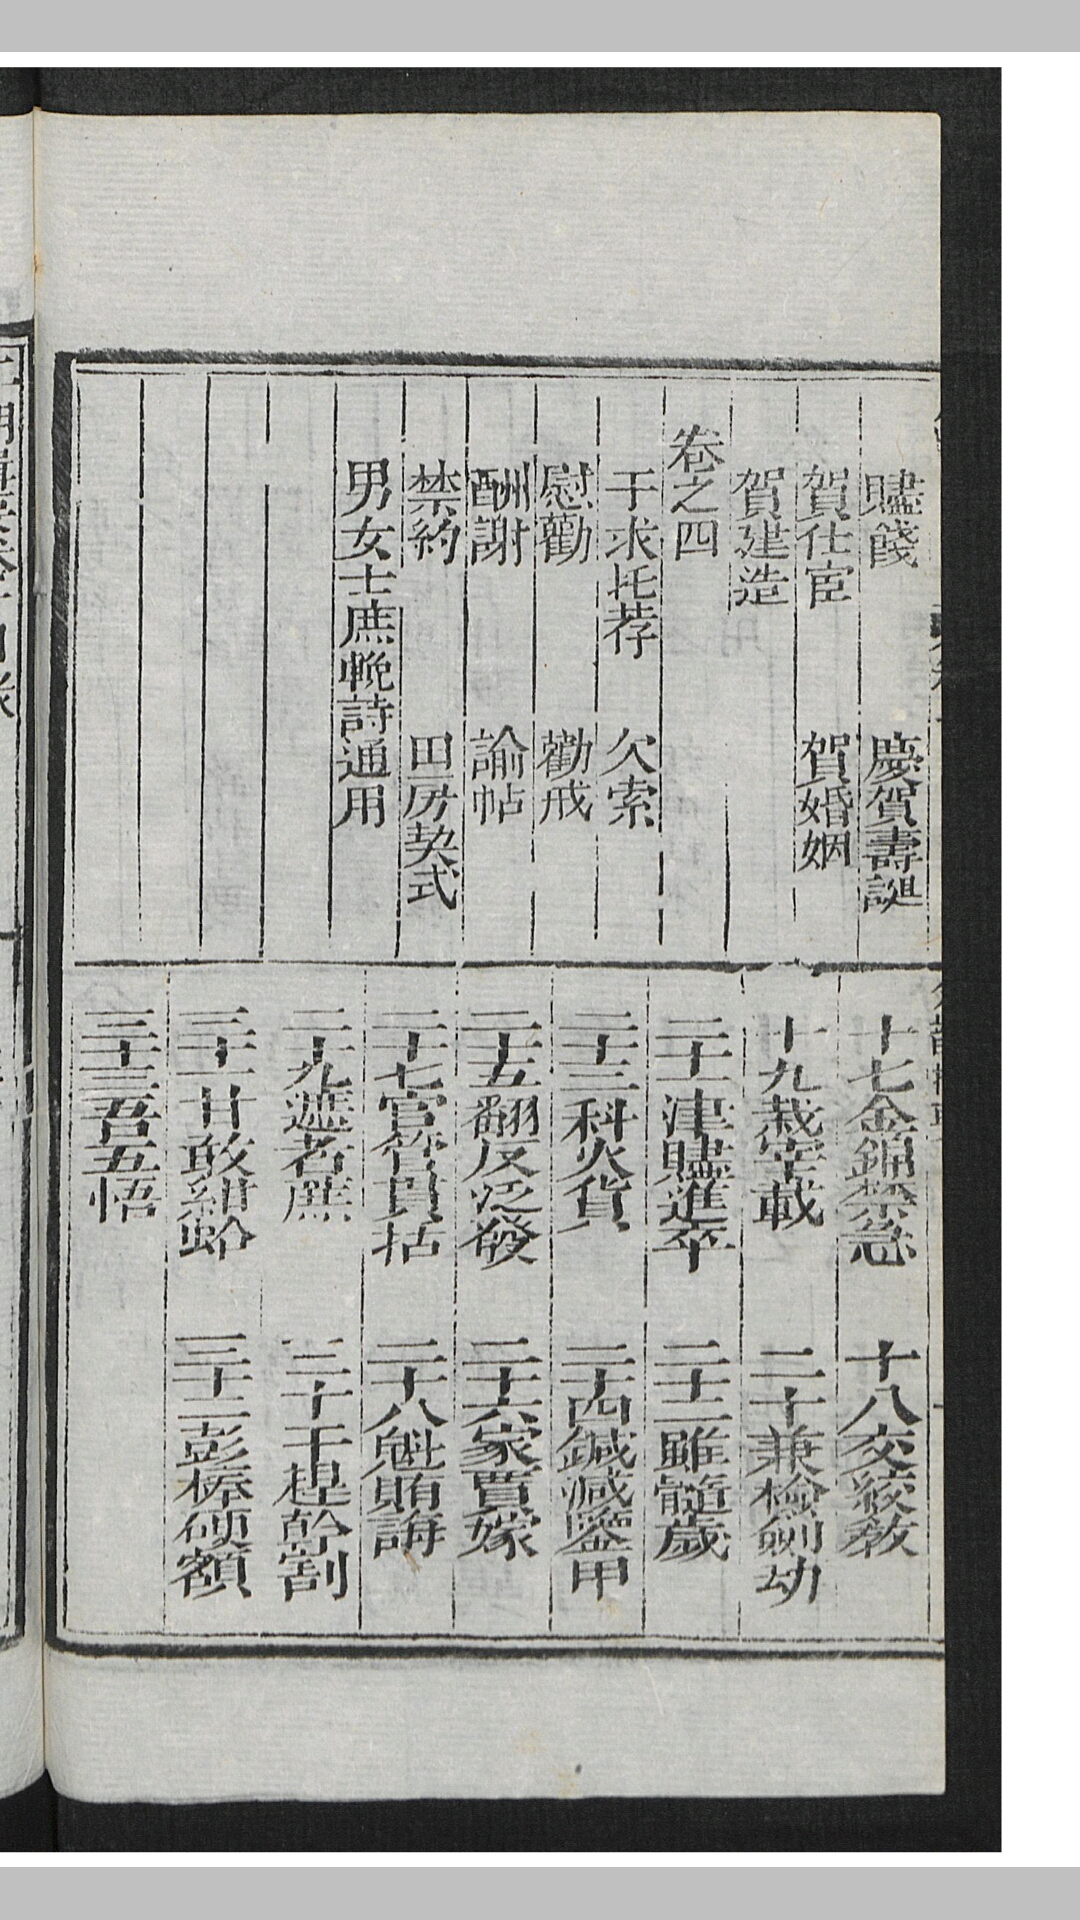 贐餞　慶賀壽誕
賀仕宦　賀婚姻
賀建造
卷之四
干求托荐　欠索
慰勸　勸戒
酬謝　諭帖
禁約　田房契式
男女士庶輓詩通用
十七金錦禁急　十八交絞教
十九栽宰載　二十兼檢劍劫
二十一津贐進卒　二十二雖髓歲
二十三科火貨　二十四鍼減鑒甲
二十五翻反泛發　二十六家賈嫁
二十七官管貫括　二十八魁賄誨
二十九遮者蔗　三十干桿幹割
三十一甘敢紺蛤　三十二彭棒硬額
三十三吾五悟